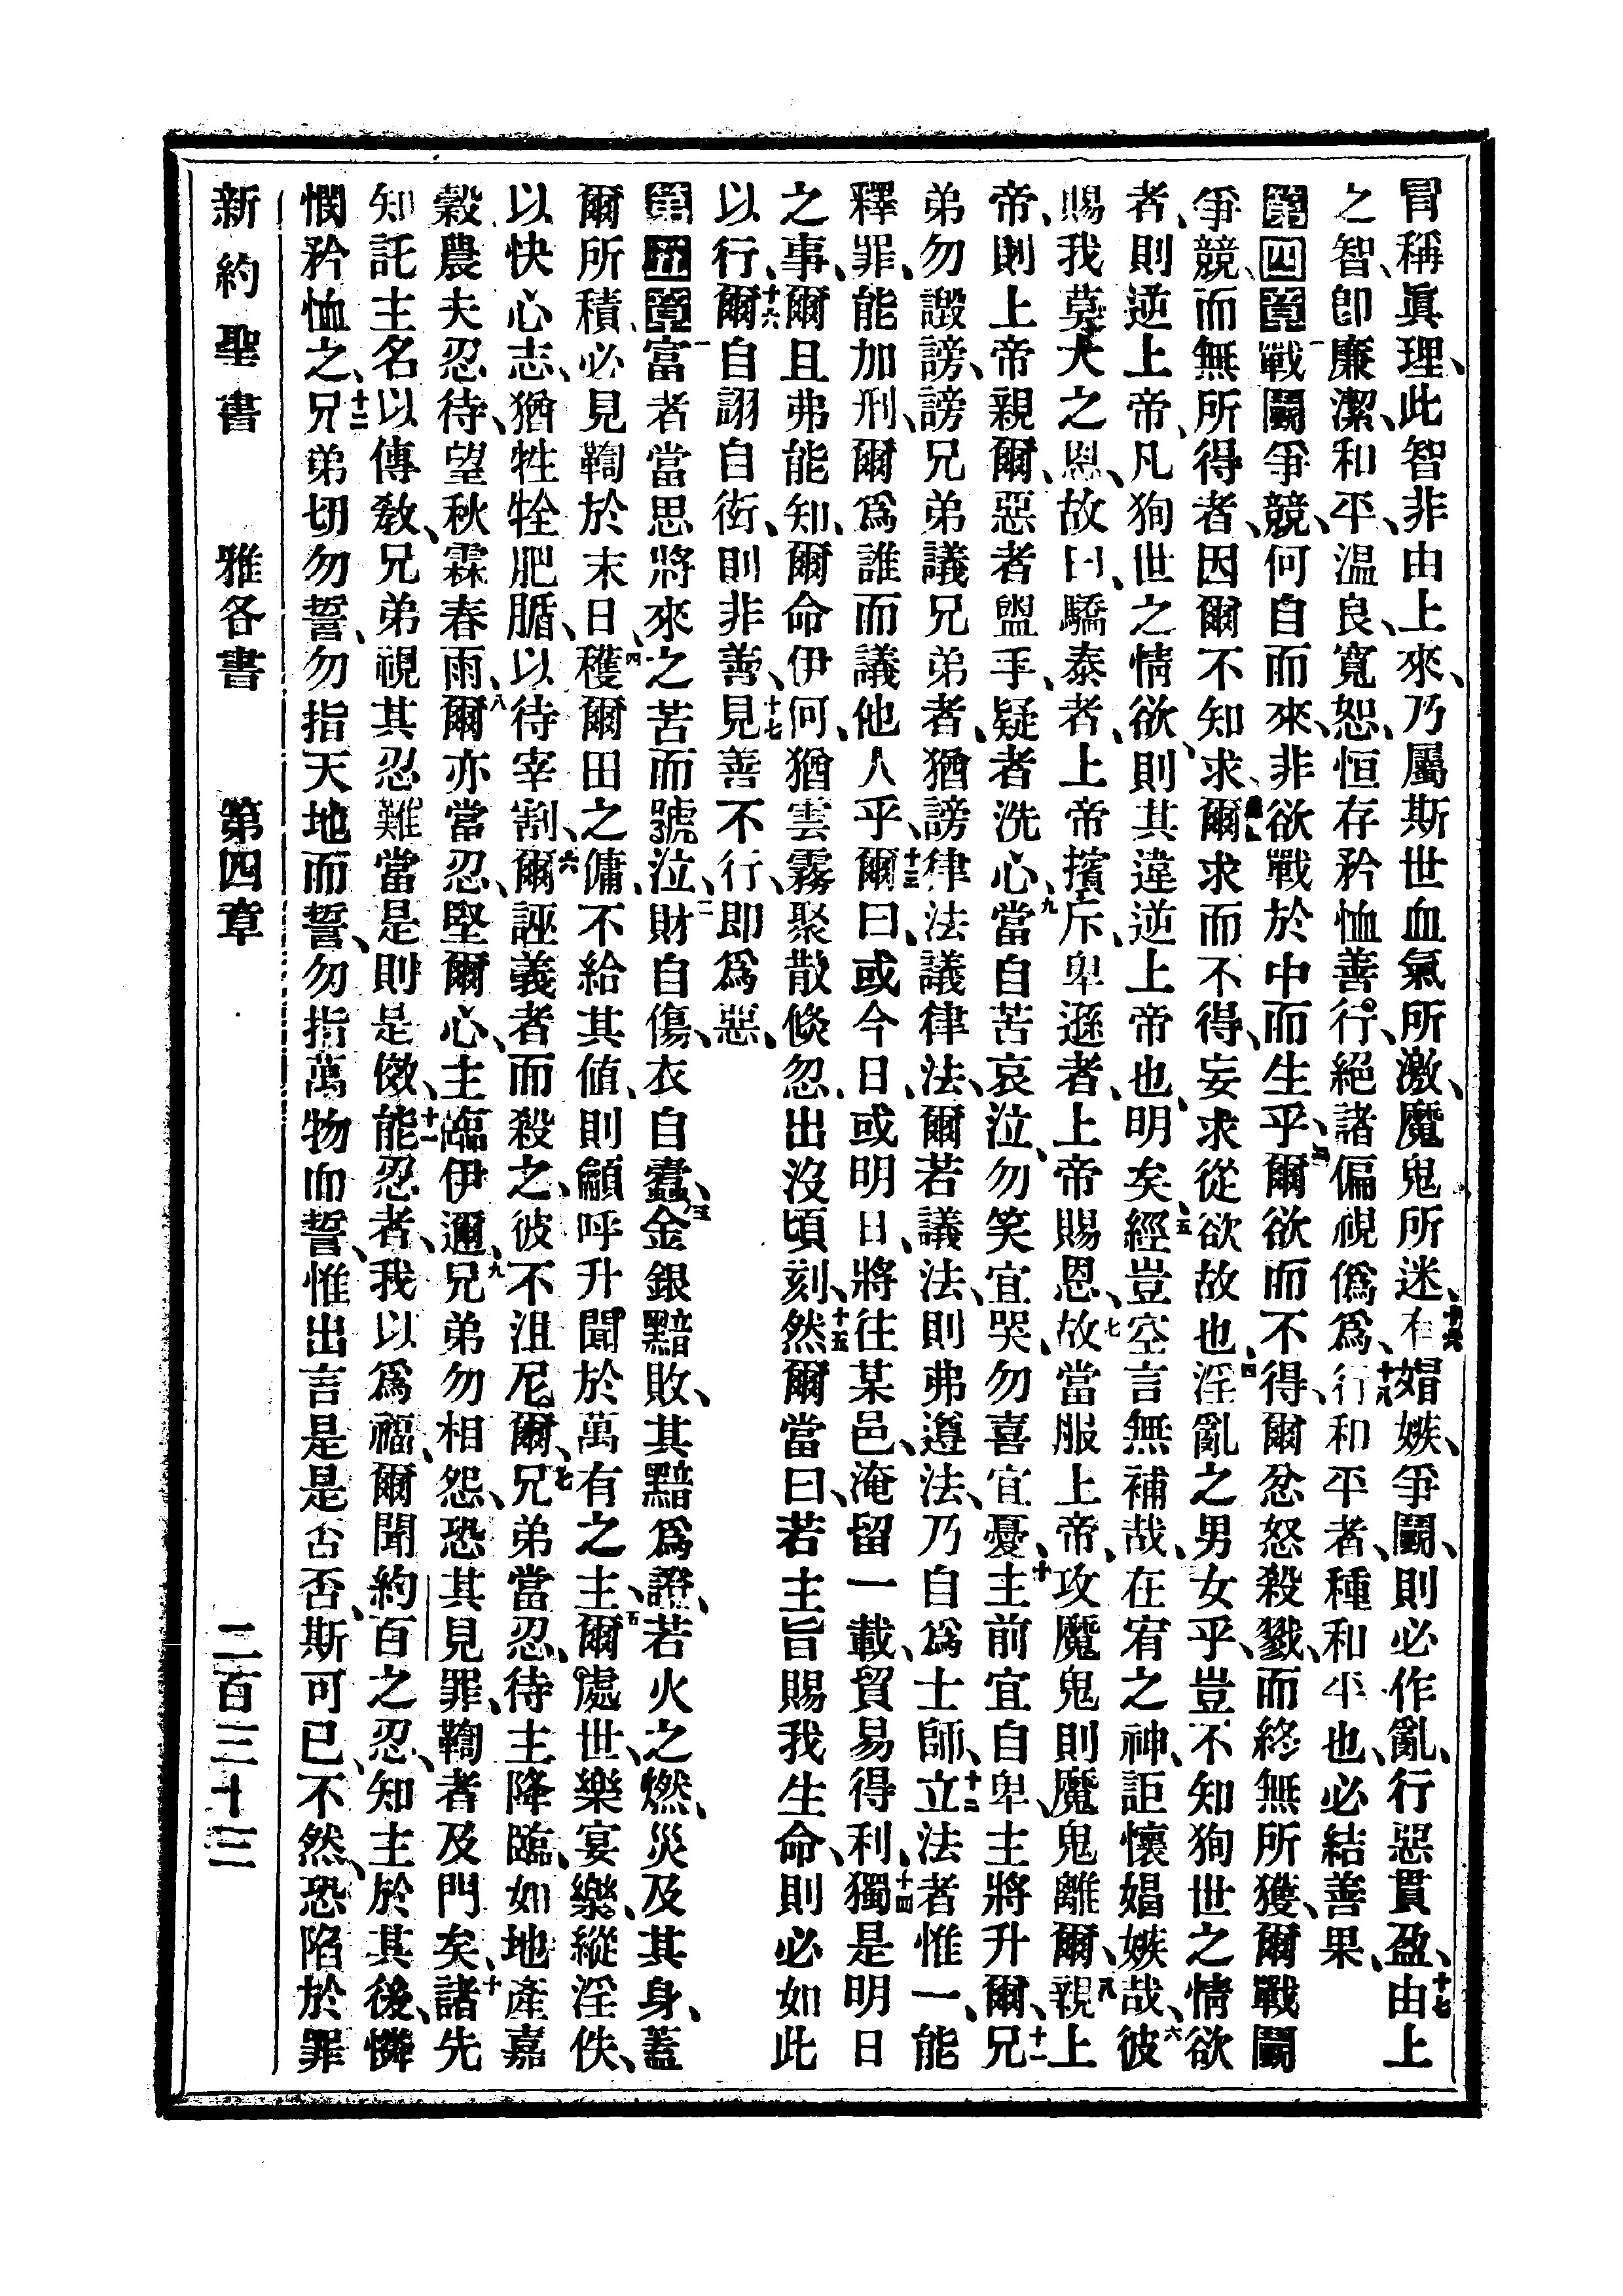 冒稱眞理、此智非由上來、乃屬斯世血氣所激、魔鬼所迷、十六有媢嫉、爭鬭、則必作亂、行惡貫盈、十七由上
之智、卽廉潔、和平、温良、寬恕、恒存矜恤善行、絕諸偏視僞爲、十八行和平者、種和平也、必結善果、
第四章一戰鬭爭競、何自而來、非欲戰於中而生乎、二爾欲而不得、爾忿怒殺戮、而終無所獲、爾戰鬭
爭競、而無所得者、因爾不知求、三爾求而不得、妄求從欲故也、四淫亂之男女乎、豈不知狥世之情欲
者、則逆上帝、凡狥世之情欲、則其違逆上帝也、明矣、五經豈空言無補哉、在宥之神、詎懷媢嫉哉、六彼
賜我莫大之恩、故曰、驕泰者、上帝擯斥、卑遜者、上帝賜恩、七故當服上帝、攻魔鬼則魔鬼離爾、八親上
帝、則上帝親爾、惡者盥手、疑者洗心、九當自苦哀泣、勿笑宜哭、勿喜宜憂、十主前宜自卑、主將升爾、十一兄
弟勿譭謗、謗兄弟議兄弟者、猶謗律法議律法、爾若議法、則弗遵法、乃自爲士師、十二立法者惟一、能
釋罪、能加刑、爾爲誰而議他人乎、十三爾曰、或今日、或明日、將往某邑、淹留一載、貿易得利、十四獨是明日
之事、爾且弗能知、爾命伊何、猶雲霧聚散倏忽、出沒頃刻、十五然爾當曰、若主旨賜我生命、則必如此
以行、十六爾自詡自衒、則非善、十七見善不行、卽爲惡、
第五章一富者當思將來之苦而號泣、二財自傷、衣自蠹、三金銀黯敗、其黯爲證、若火之燃、災及其身、蓋
爾所積、必見鞫於末日、四穫爾田之傭、不給其値、則籲呼升聞於萬有之主、五爾處世、樂宴樂、縱淫佚、
以快心志、猶牲牷肥腯、以待宰割、六爾誣義者而殺之、彼不沮尼爾、七兄弟當忍、待主降臨、如地產嘉
穀、農夫忍待、望秋霖春雨、八爾亦當忍、堅爾心、主臨伊邇、九兄弟勿相怨、恐其見罪、鞫者及門矣、十諸先
知託主名以傳敎、兄弟視其忍難、當是則是傚、十一能忍者、我以爲福、爾聞約百之忍、知主於其後、憐
憫矜恤之、十二兄弟切勿誓、勿指天地而誓、勿指萬物而誓、惟出言是是否否、斯可已、不然、恐陷於罪
新約聖書　雅各書　第四章　二百三十三